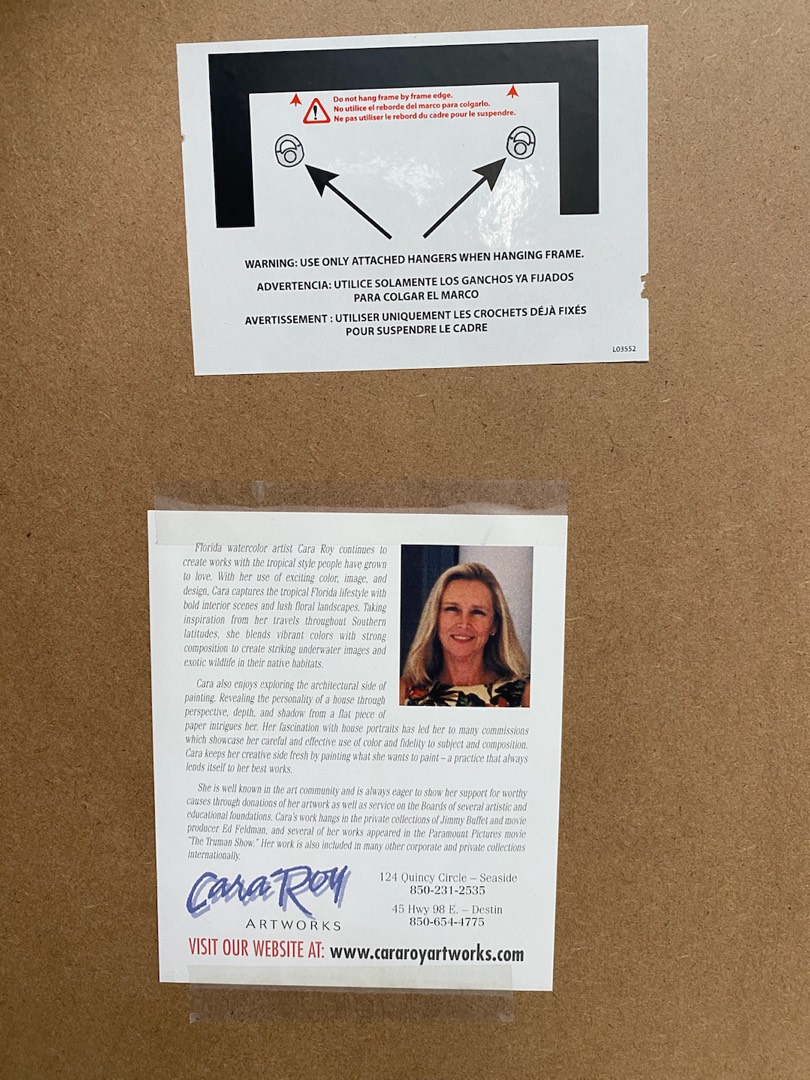 Do not hang frame by frame edge.
No utilice el reborde del marco para colgarlo.
Ne pas utiliser le rebord du cadre pour le suspendre.
WARNING: USE ONLY ATTACHED HANGERS WHEN HANGING FRAME.
ADVERTENCIA: UTILICE SOLAMENTE LOS GANCHOS YA FIJADOS
PARA COLGAR EL MARCO
AVERTISSEMENT : UTILISER UNIQUEMENT LES CROCHETS DÉJÀ FIXÉS
POUR SUSPENDRE LE CADRE
L03552
Florida watercolor artist Cara Roy continues to
create works with the tropical style people have grown
to love. With her use of exciting color, image, and
design, Cara captures the tropical Florida lifestyle with
bold interior scenes and lush floral landscapes. Taking
inspiration from her travels throughout Southern
latitudes, she blends vibrant colors with strong
composition to create striking underwater images and
exotic wildlife in their native habitats.
Cara also enjoys exploring the architectural side of
painting. Revealing the personality of a house through
perspective, depth, and shadow from a flat piece of
paper intrigues her. Her fascination with house portraits has led her to many commissions
which showcase her careful and effective use of color and fidelity to subject and composition.
Cara keeps her creative side fresh by painting what she wants to paint – a practice that always
lends itself to her best works.
She is well known in the art community and is always eager to show her support for worthy
causes through donations of her artwork as well as service on the Boards of several artistic and
educational foundations. Cara's work hangs in the private collections of Jimmy Buffet and movie
producer Ed Feldman, and several of her works appeared in the Paramount Pictures movie
"The Truman Show." Her work is also included in many other corporate and private collections
internationally.
Cara Roy
ARTWORKS
124 Quincy Circle – Seaside
850-231-2535
45 Hwy 98 E. – Destin
850-654-4775
VISIT OUR WEBSITE AT: www.cararoyartworks.com